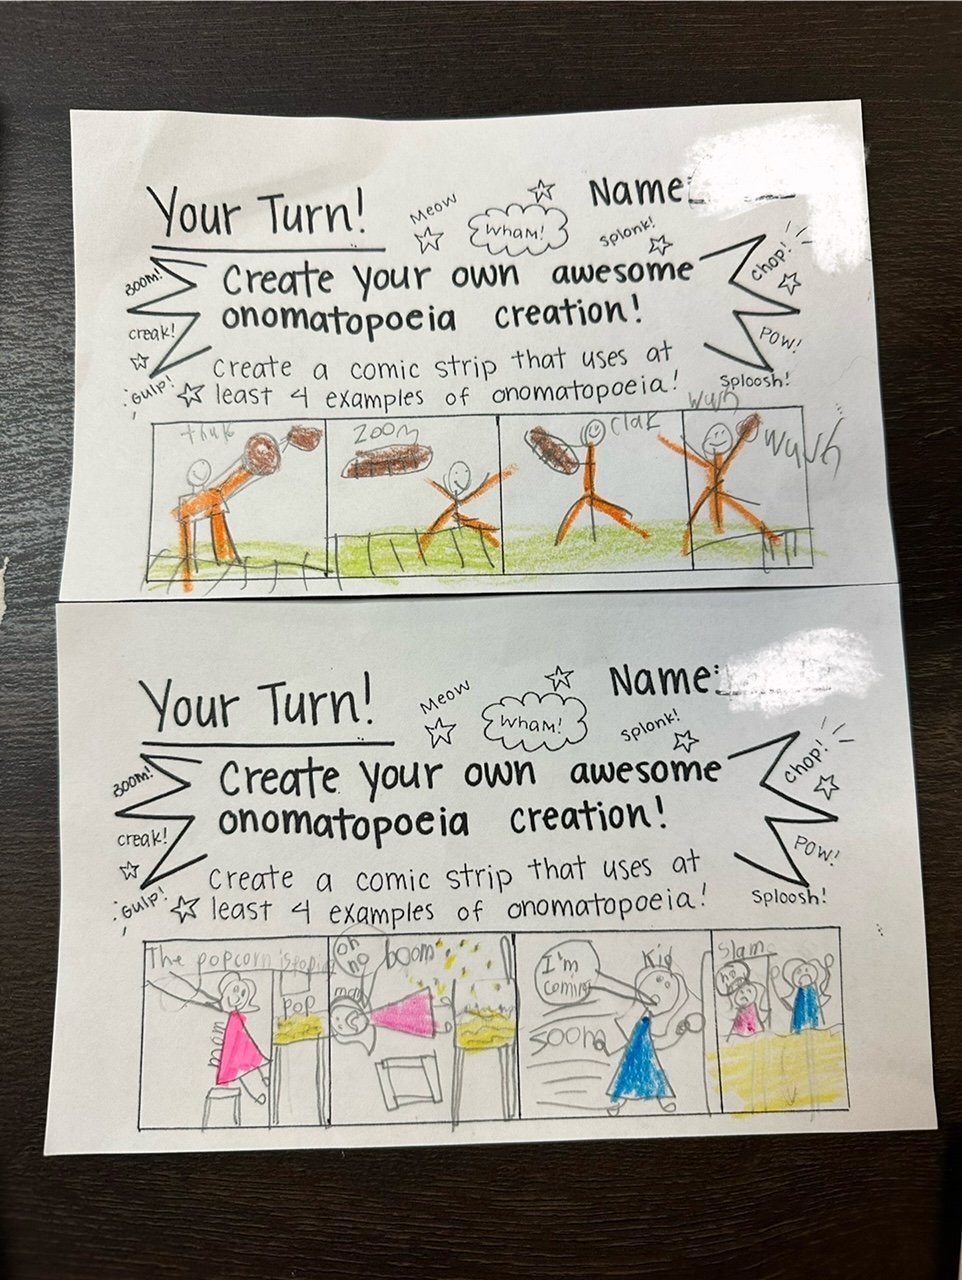 Your Turn!
Meow
Wham!
Name:
Splonk!
Boom!
Create your own awesome
chop!
creak!
onomatopoeia creation!
Pow!
Gulp!
Create a comic strip that uses at
least 4 examples of onomatopoeia!
Sploosh!
thuk
zoom
clak
wush
wush
Your Turn!
Meow
Wham!
Name:
Splonk!
Boom!
Create your own awesome
chop!
creak!
onomatopoeia creation!
Pow!
Gulp!
Create a comic strip that uses at
least 4 examples of onomatopoeia!
Sploosh!
The popcorn is poping
pop
mom
oh
no
boom
mom
I'm
coming
Kid
Slam